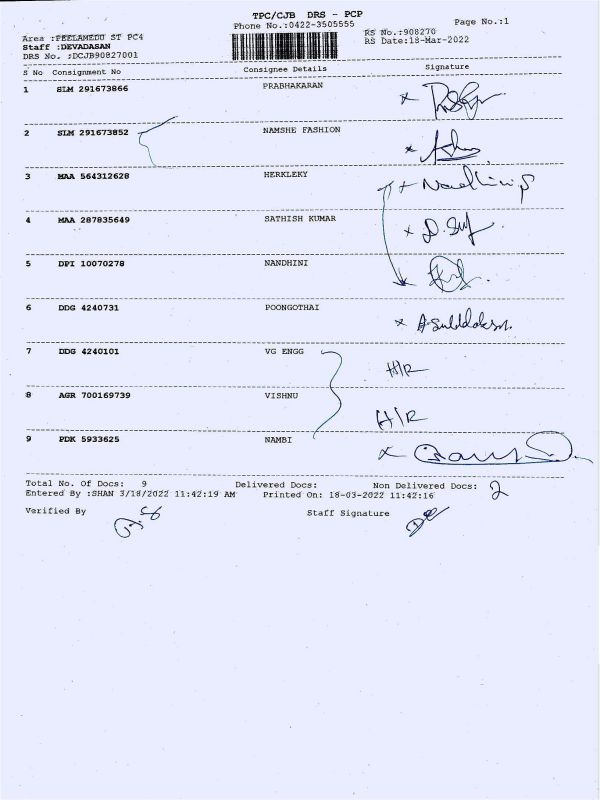 TPC/CJB DRS - PCP
Phone No.:0422-3505555
Page No.:1
Area :PEELAMEDU ST PC4
RS No.:908270
Staff :DEVADASAN
RS Date:18-Mar-2022
DRS No. :DCJB90827001
S No Consignment No Consignee Details Signature
1 SLM 291673866 PRABHAKARAN
2 SLM 291673852 NAMSHE FASHION
3 MAA 564312628 HERKLEKY
4 MAA 287835649 SATHISH KUMAR
5 DPI 10070278 NANDHINI
6 DDG 4240731 POONGOTHAI
7 DDG 4240101 VG ENGG H/R
8 AGR 700169739 VISHNU H/R
9 PDK 5933625 NAMBI
Total No. Of Docs: 9 Delivered Docs: Non Delivered Docs: 2
Entered By :SHAN 3/18/2022 11:42:19 AM Printed On: 18-03-2022 11:42:16
Verified By Staff Signature